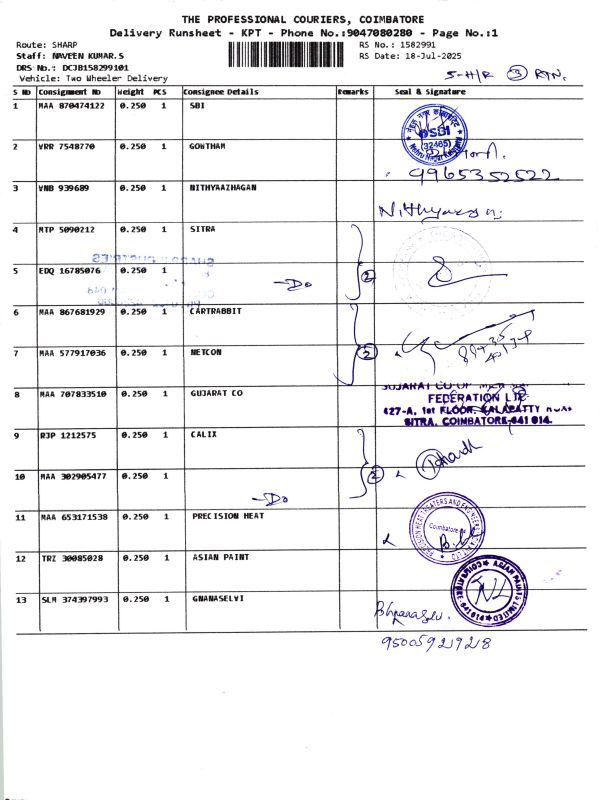 THE PROFESSIONAL COURIERS, COIMBATORE
Delivery Runsheet - KPT - Phone No.:9047080280 - Page No.:1
Route: SHARP
RS No.: 1582991
Staff: NAVEEN KUMAR.S
RS Date: 18-Jul-2025
DRS No.: DCJB158299101
Vehicle: Two Wheeler Delivery
5-H/R ③ RTN.
S No Consignment No Weight PCS Consignee Details Remarks Seal & Signature
1 MAA 870474122 0.250 1 SBI
SBI
(32465)
2 VRR 7548770 0.250 1 GOWTHAM
9965352522
3 VNB 939689 0.250 1 NITHYAAZHAGAN
4 MTP 5090212 0.250 1 SITRA
②
5 EDQ 16785076 0.250 1 -Do
6 MAA 867681929 0.250 1 CARTRABBIT
7 MAA 577917036 0.250 1 NETCON ②
8 MAA 707833510 0.250 1 GUJARAT CO
GUJARAT CO OP
FEDERATION LTD
427-A, 1st FLOOR, KALAPATTY ROAD
SITRA, COIMBATORE-641 014.
9 RJP 1212575 0.250 1 CALIX
10 MAA 302905477 0.250 1 -Do ②
11 MAA 653171538 0.250 1 PRECISION HEAT
PRECISION HEAT TREATERS AND ENGINEERS
Coimbatore
12 TRZ 30085028 0.250 1 ASIAN PAINT
ASIAN PAINTS LIMITED
COIMBATORE 641014
13 SLM 374397993 0.250 1 GNANASELVI
9500592928